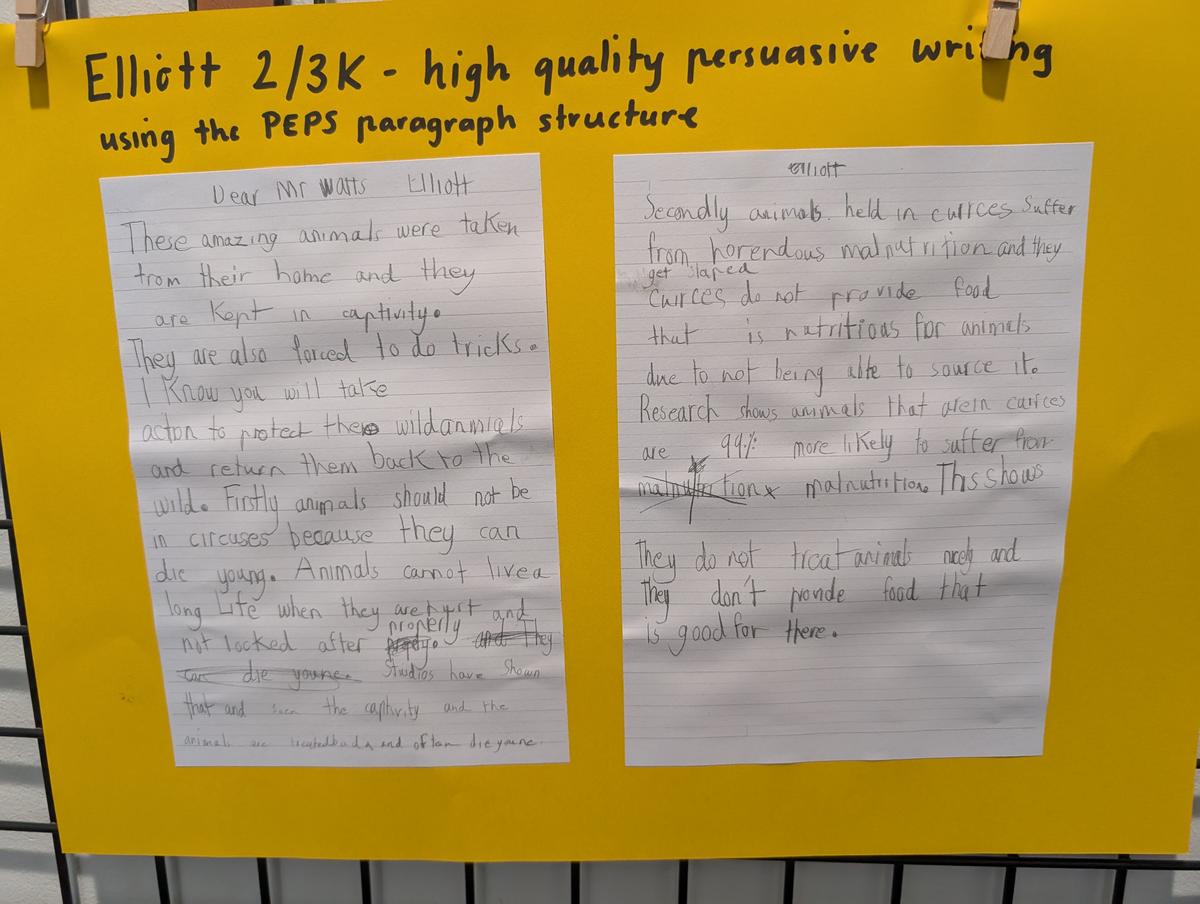 Elliott 2/3K - high quality persuasive writing
using the PEPS paragraph structure
Dear Mr Watts Elliott
These amazing animals were taken
from their home and they
are kept in captivity.
They are also forced to do tricks.
I know you will take
acton to protect these wildanmials
and return them back to the
wild. Firstly animals should not be
in circuses because they can
die young. Animals cannot live a
long life when they are hurt and
not locked after properly and they
can die young. Studios have shown
that and the captivity and the
animals are and oftan die youne.
Elliott
Secondly animals. held in cuirces suffer
from horendous malnutrition and they
get slaped
cuirces do not provide food
that is nutritious for animals
due to not being able to source it.
Research shows animals that arein cuirces
are 99% more likely to suffer from
malnutrition malnutrition. This shows
They do not treat animals nicely and
they don't provide food that
is good for there.